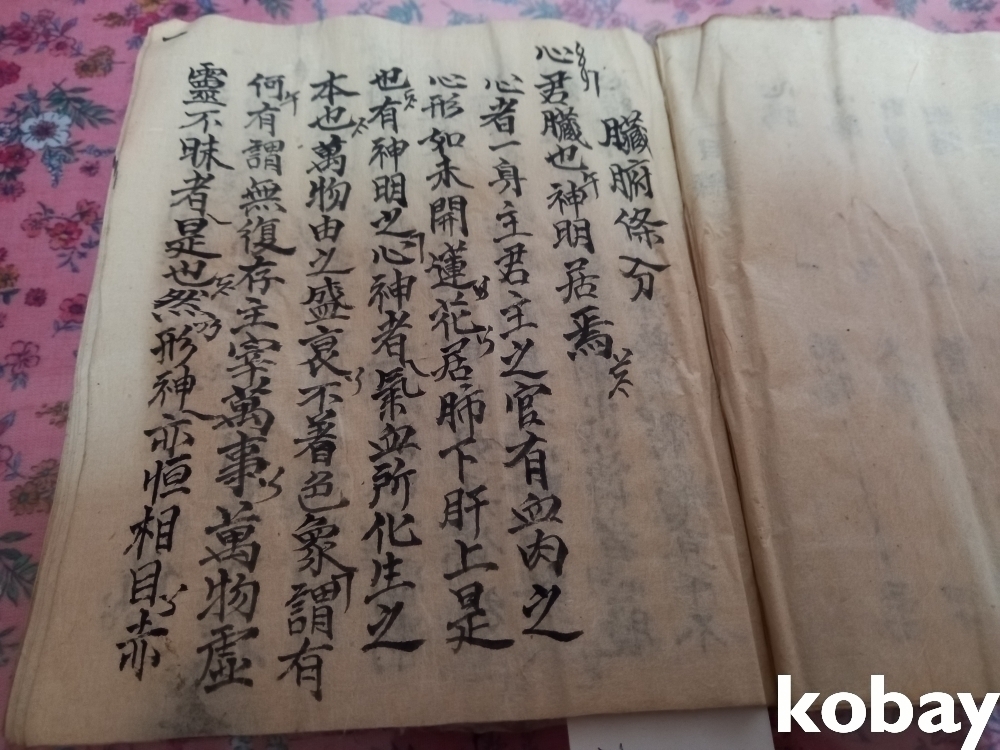 臟腑條分
心君臟也神明居焉
心者一身主君主之官有血肉之
心形如未開蓮花居肺下肝上是
也有神明之心神者氣血所化生之
本也萬物由之盛衰不著色象謂有
何有謂無復存主宰萬事萬物虛
靈不昧者是也然形神亦恒相目赤
kobay